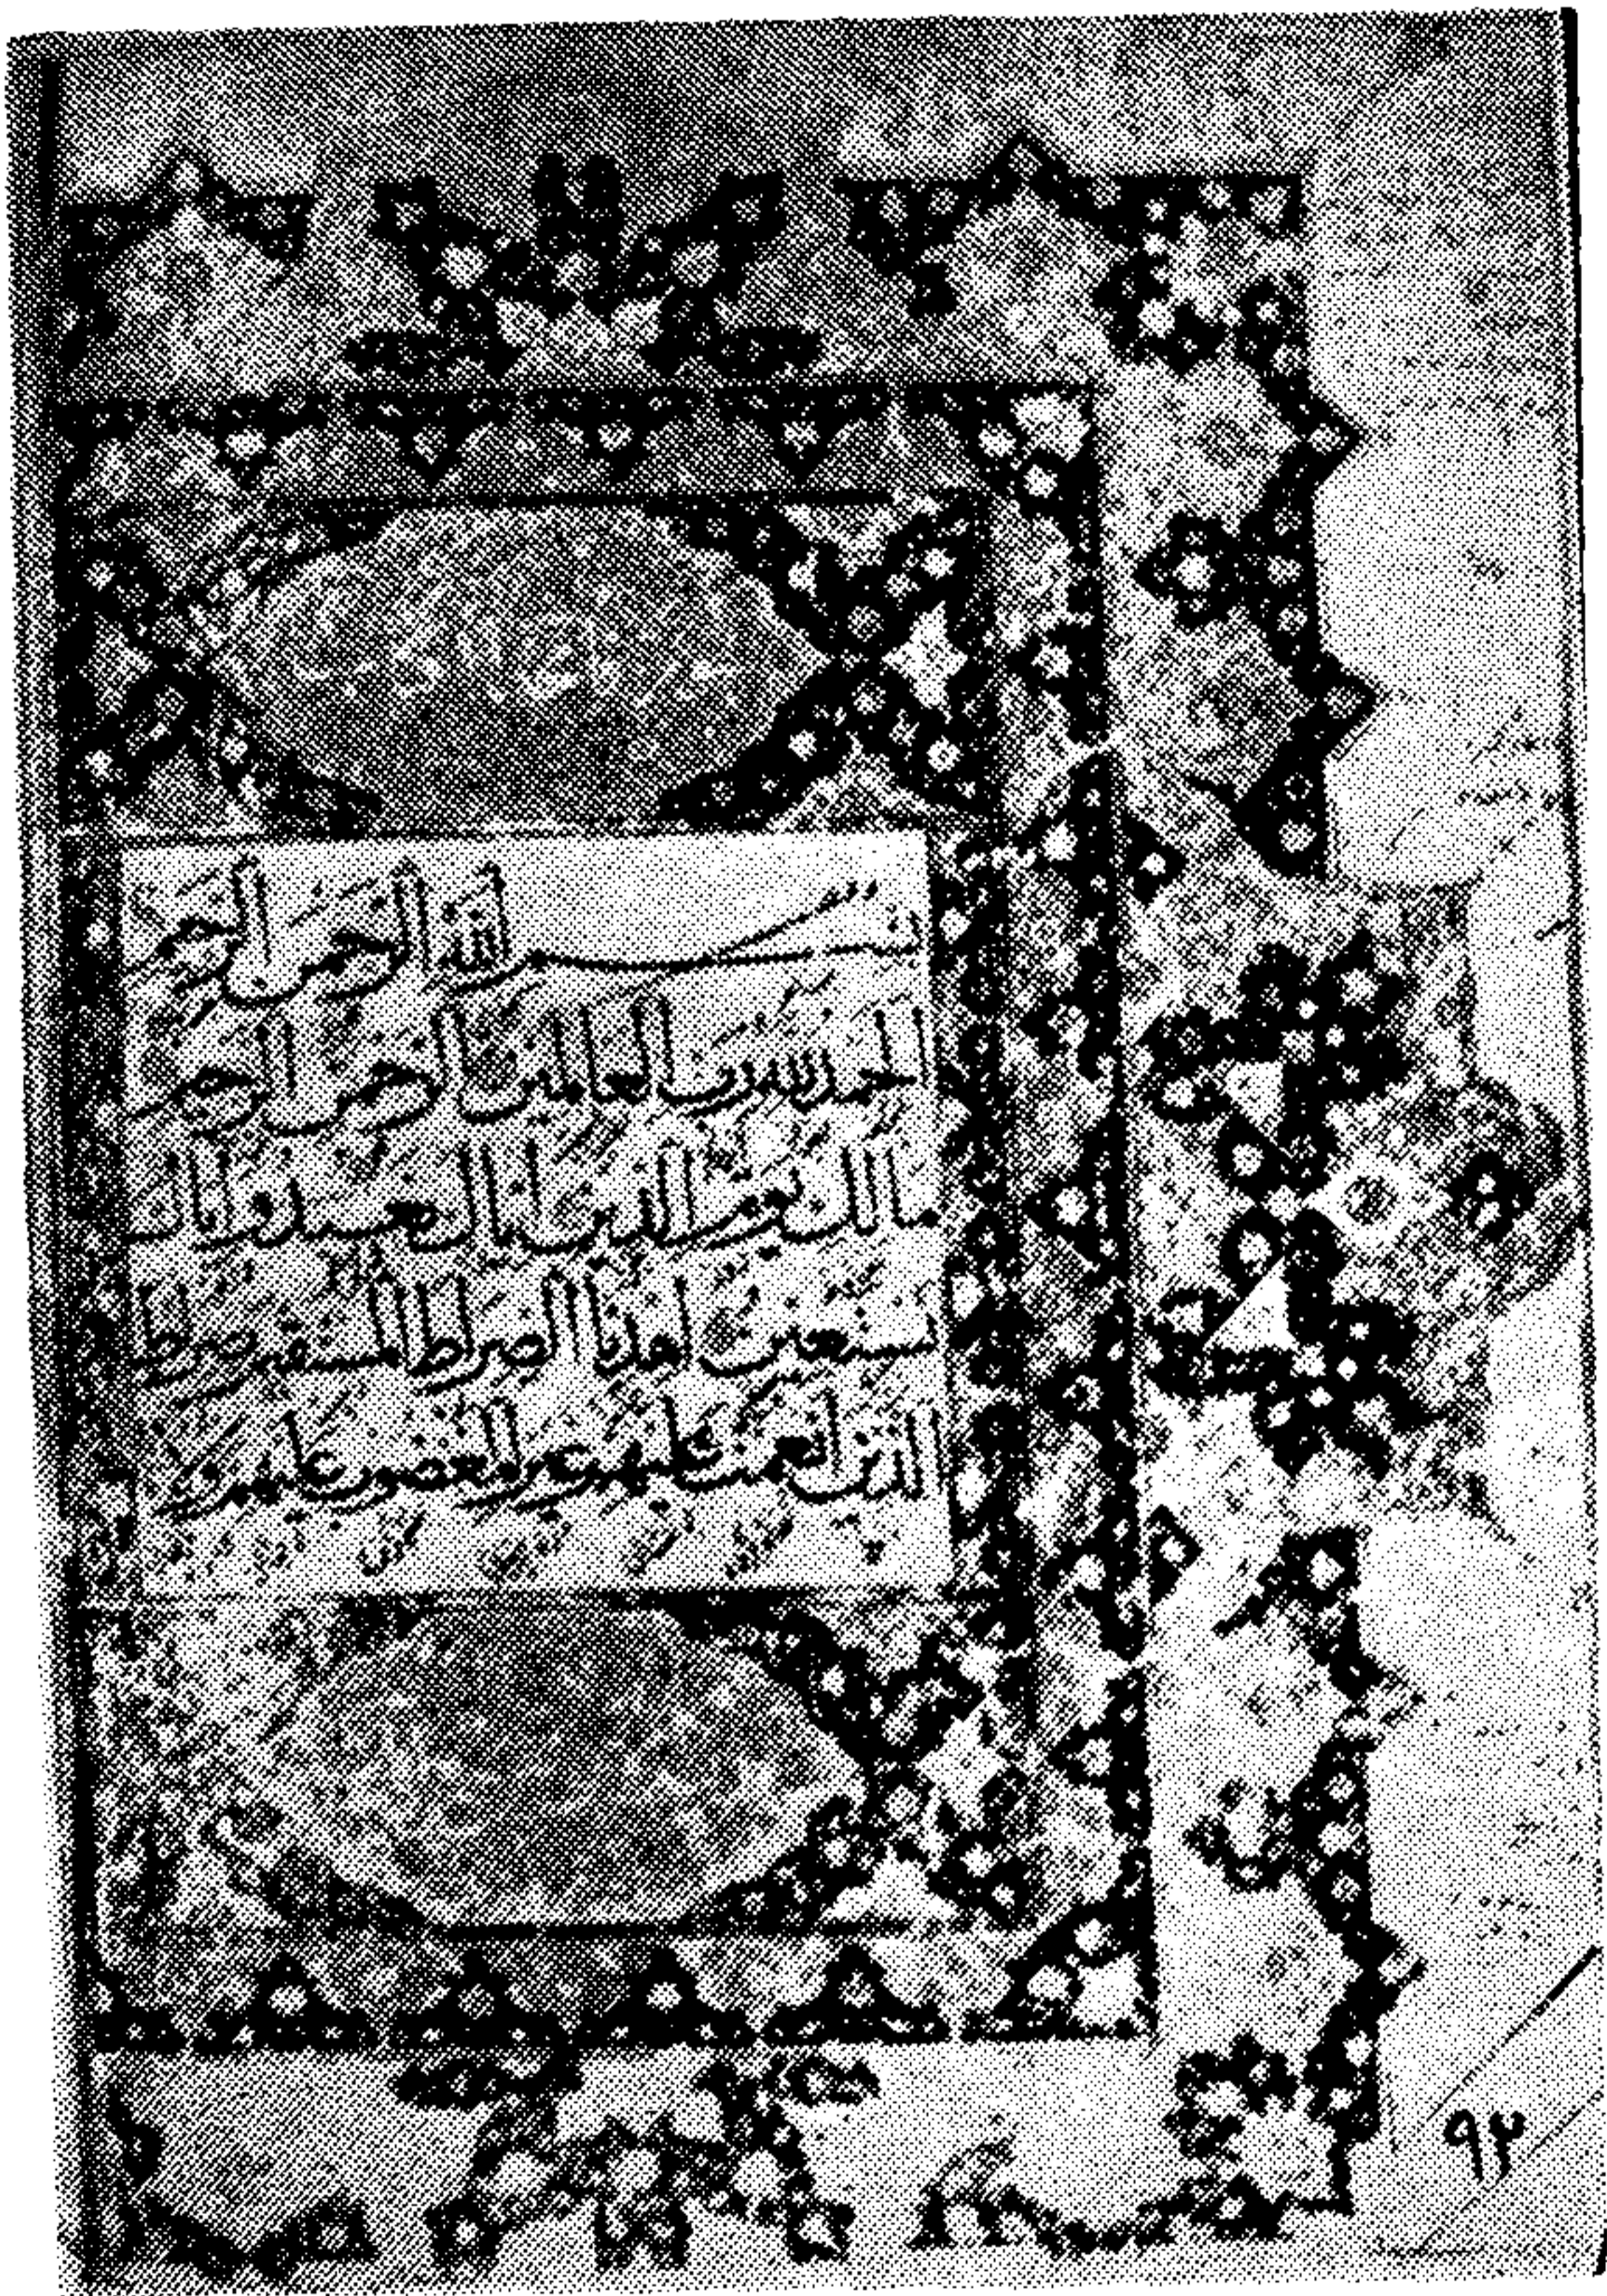 بسم الله الرحمن الرحيم
الحمد لله رب العالمين الرحمن الرحيم
مالك يوم الدين اياك نعبد واياك
نستعين اهدنا الصراط المستقيم صراط
الذين انعمت عليهم غير المغضوب عليهم
٩٣